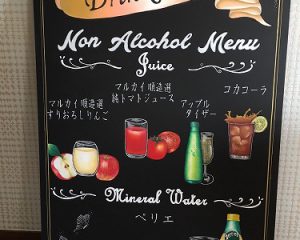 Non Alcohol Menu
Juice
マルカイ順造選
すりおろしりんご
マルカイ順造選
純トマトジュース
アップル
タイザー
コカコーラ
Mineral Water
ペリエ